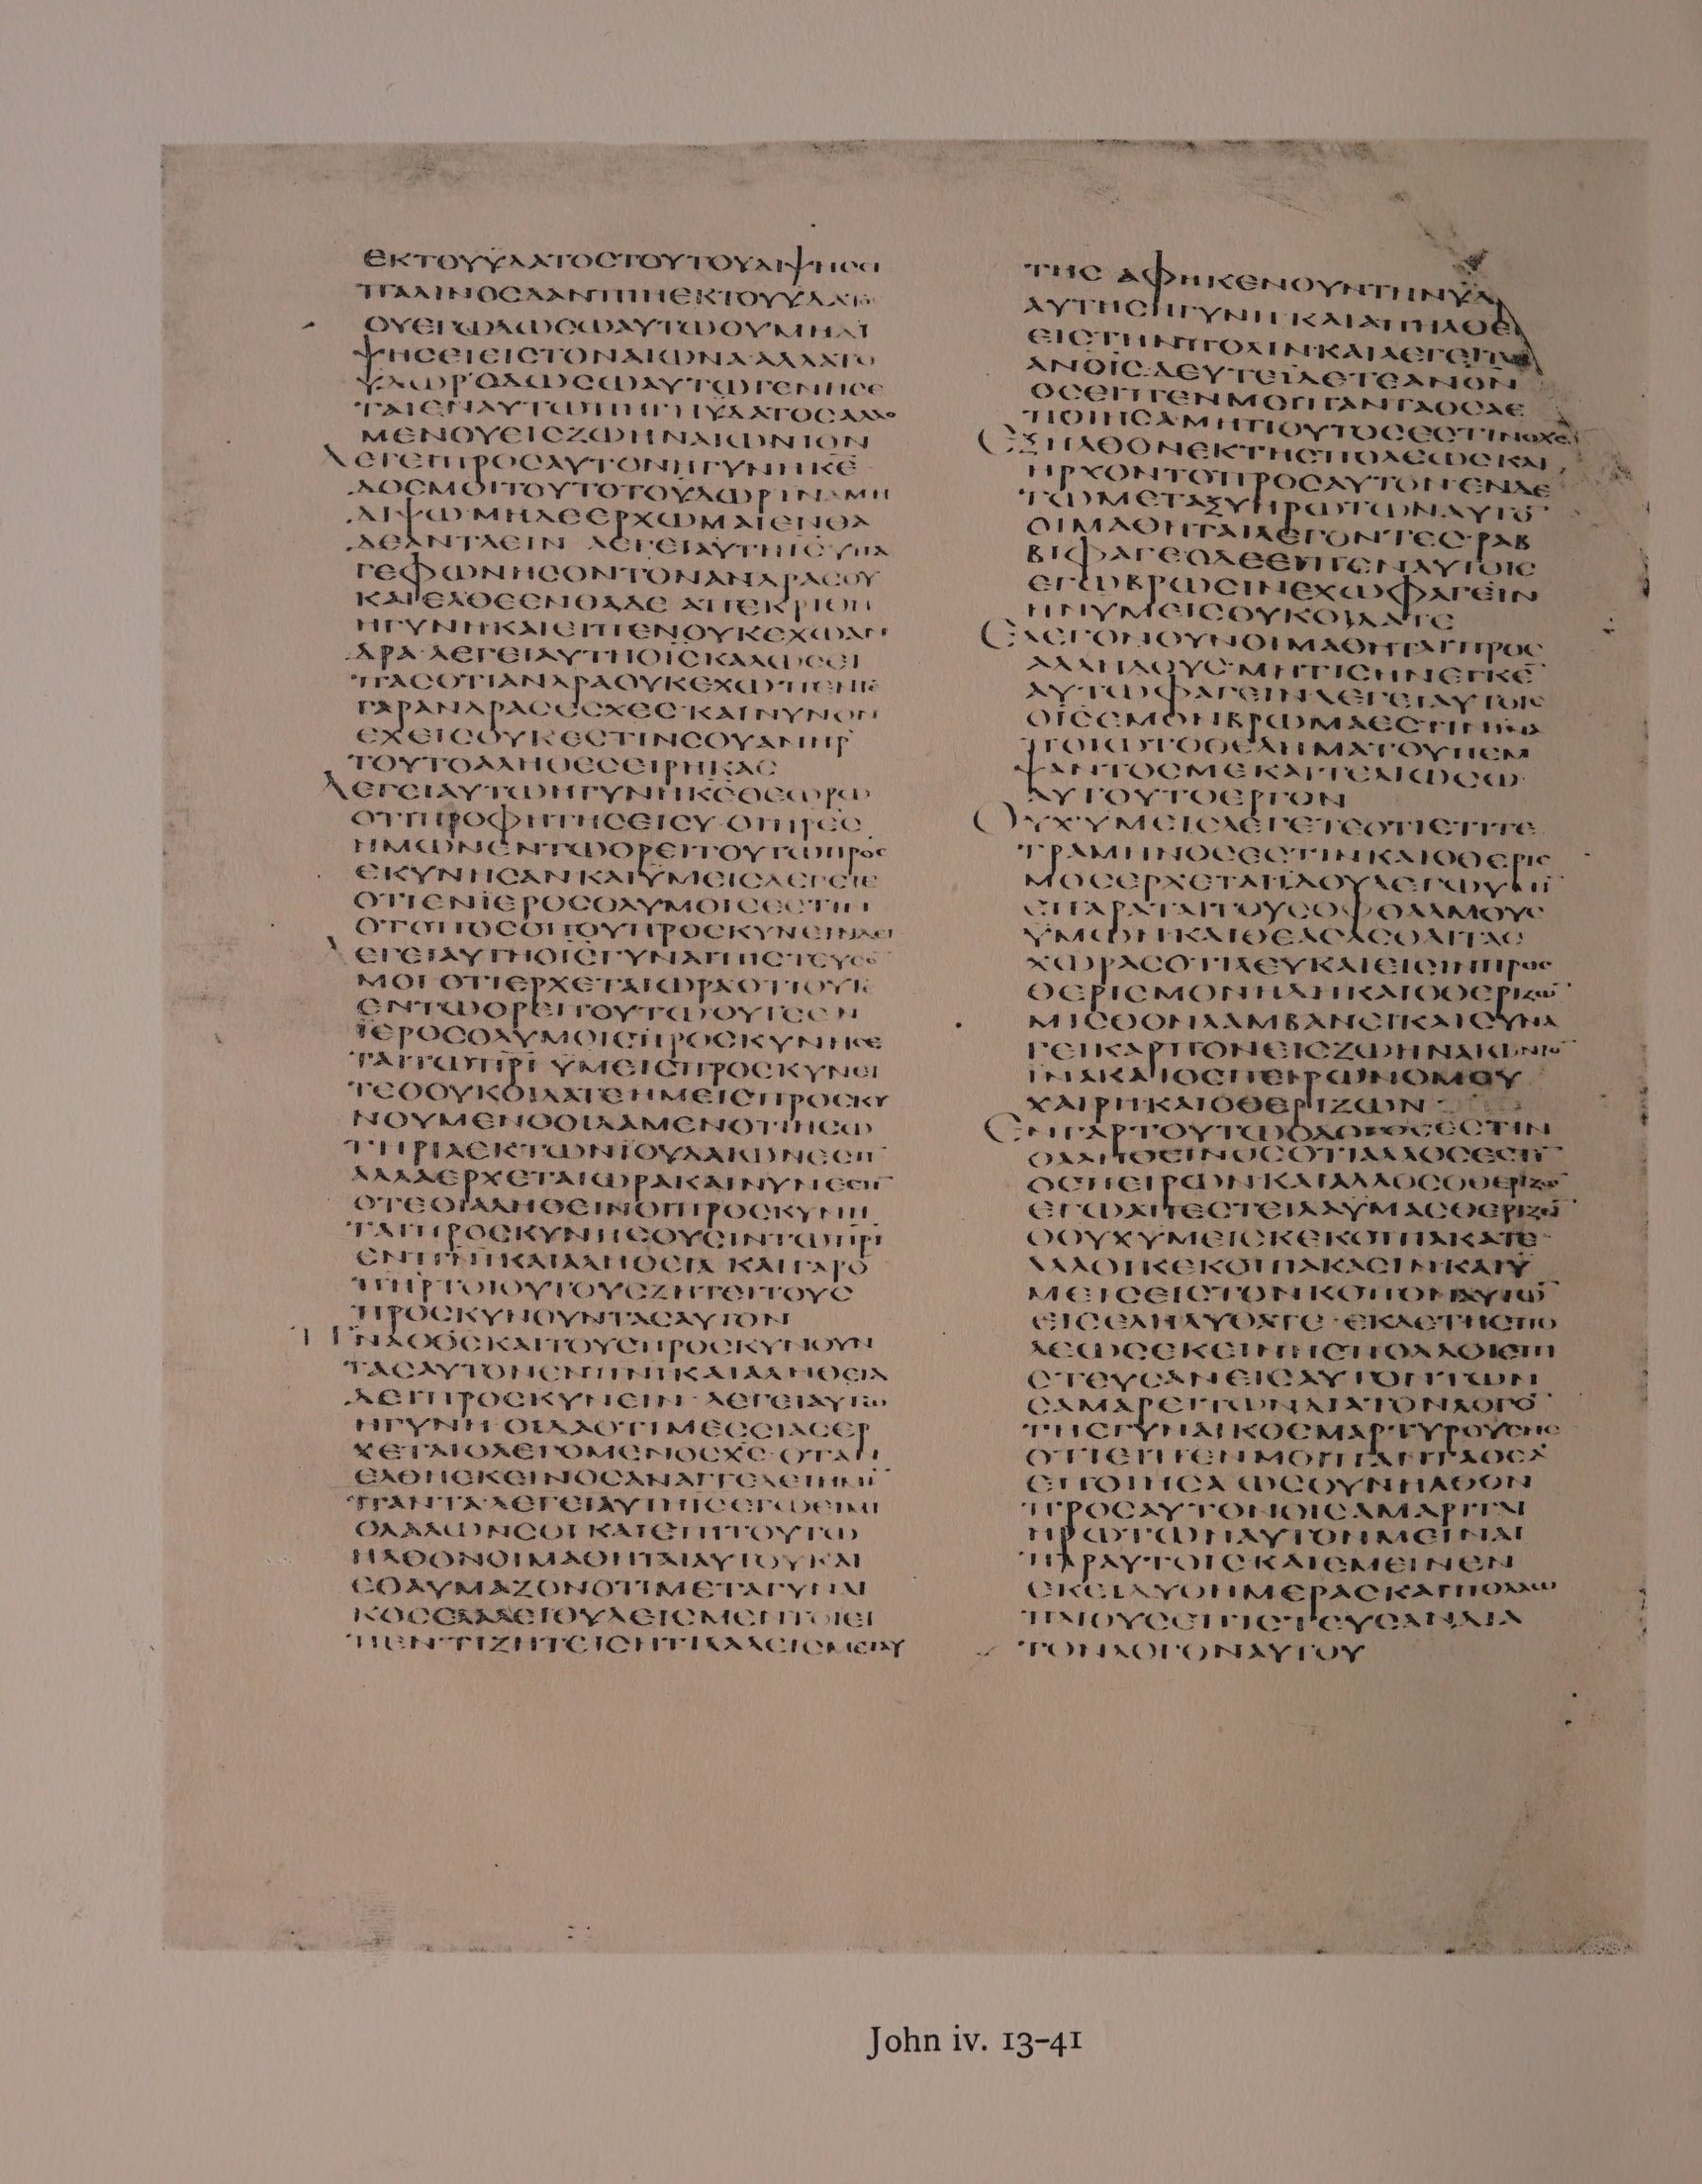 ΕΚΤΟΥΥΔΑΤΟϹΤΟΥΤΟΥΔΙΨΗϹΕΙ
ΠΑΛΙΝΟϹΔΑΝΠΙΗΕΚΤΟΥΥΔΑΤΟϹ
ΟΥΕΓΩΔΩϹΩΑΥΤΩΟΥΜΗΔΙ
ΨΗϹΕΙΕΙϹΤΟΝΑΙΩΝΑΑΛΛΑΤΟ
ΥΔΩΡΟΔΩϹΩΑΥΤΩΓΕΝΗϹΕ
ΤΑΙΕΝΑΥΤΩΠΗΓΗΥΔΑΤΟϹΑΛΛΟ
ΜΕΝΟΥΕΙϹΖΩΗΝΑΙΩΝΙΟΝ
ΛΕΓΕΙΠΡΟϹΑΥΤΟΝΗΓΥΝΗΚΕ
ΔΟϹΜΟΙΤΟΥΤΟΤΟΥΔΩΡΙΝΑΜΗ
ΔΙΨΩΜΗΔΕΕΡΧΩΜΑΙΕΝΘΑ
ΔΕΑΝΤΛΕΙΝ ΛΕΓΕΙΑΥΤΗΙϹΥΠΑ
ΓΕΦΩΝΗϹΟΝΤΟΝΑΝΔΡΑϹΟΥ
ΚΑΙΕΛΘΕΕΝΘΑΔΕ ΑΠΕΚΡΙΘΗ
ΗΓΥΝΗΚΑΙΕΙΠΕΝΟΥΚΕΧΩΑΝ
ΔΡΑ ΛΕΓΕΙΑΥΤΗΟΙϹΚΑΛΩϹΕΙ
ΠΑϹΟΤΙΑΝΔΡΑΟΥΚΕΧΩΠΕΝΤΕ
ΓΑΡΑΝΔΡΑϹΕϹΧΕϹΚΑΙΝΥΝΟΝ
ΕΧΕΙϹΟΥΚΕϹΤΙΝϹΟΥΑΝΗΡ
ΤΟΥΤΟΑΛΗΘΕϹΕΙΡΗΚΑϹ
ΛΕΓΕΙΑΥΤΩΗΓΥΝΗΚΕΘΕΩΡΩ
ΟΤΙΠΡΟΦΗΤΗϹΕΙϹΥ ΟΙΠΡΕϹ
ΗΜΩΝΕΝΤΩΟΡΕΙΤΟΥΤΩΠΡΟϹ
ΕΚΥΝΗϹΑΝΚΑΙΥΜΕΙϹΛΕΓΕΤΕ
ΟΤΙΕΝΙΕΡΟϹΟΛΥΜΟΙϹΕϹΤΙΝ
ΟΤΟΠΟϹΟΠΟΥΠΡΟϹΚΥΝΕΙΝΔΕΙ
ΛΕΓΕΙΑΥΤΗΟΙϹΓΥΝΑΙΠΙϹΤΕΥϹΟ
ΜΟΙΟΤΙΕΡΧΕΤΑΙΩΡΑΟΤΙΟΥΤΕ
ΕΝΤΩΟΡΕΙΤΟΥΤΩΟΥΤΕΕΝ
ΙΕΡΟϹΟΛΥΜΟΙϹΠΡΟϹΚΥΝΗϹΕ
ΤΑΙΤΩΠΡΙ ΥΜΕΙϹΠΡΟϹΚΥΝΕΙ
ΤΕΟΟΥΚΟΙΔΑΤΕΗΜΕΙϹΠΡΟϹΚΥ
ΝΟΥΜΕΝΟΟΙΔΑΜΕΝΟΤΙΗϹΩ
ΤΗΡΙΑΕΚΤΩΝΙΟΥΔΑΙΩΝΕϹΤΙ
ΑΛΛΑΕΡΧΕΤΑΙΩΡΑΚΑΙΝΥΝΕϹΤΙ
ΟΤΕΟΙΑΛΗΘΕΙΝΟΙΠΡΟϹΚΥΝΗ
ΤΑΙΠΡΟϹΚΥΝΗϹΟΥϹΙΝΤΩΠΡΙ
ΕΝΠΝΙΚΑΙΑΛΗΘΕΙΑ ΚΑΙΓΑΡΟ
ΠΗΡΤΟΙΟΥΤΟΥϹΖΗΤΕΙΤΟΥϹ
ΠΡΟϹΚΥΝΟΥΝΤΑϹΑΥΤΟΝ
ΠΝΑΟΘϹΚΑΙΤΟΥϹΠΡΟϹΚΥΝΟΥΝ
ΤΑϹΑΥΤΟΝΕΝΠΝΙΚΑΙΑΛΗΘΕΙΑ
ΔΕΙΠΡΟϹΚΥΝΕΙΝ ΛΕΓΕΙΑΥΤΩ
ΗΓΥΝΗ ΟΙΔΑΟΤΙΜΕϹϹΙΑϹΕΡ
ΧΕΤΑΙΟΛΕΓΟΜΕΝΟϹΧϹ ΟΤΑΝ
ΕΛΘΗΕΚΕΙΝΟϹΑΝΑΓΓΕΛΕΙΗΜΙ
ΠΑΝΤΑ ΛΕΓΕΙΑΥΤΗΙϹΕΓΩΕΙΜΙ
ΟΛΑΛΩΝϹΟΙ ΚΑΙΕΠΙΤΟΥΤΩ
ΗΛΘΟΝΟΙΜΑΘΗΤΑΙΑΥΤΟΥΚΑΙ
ΕΘΑΥΜΑΖΟΝΟΤΙΜΕΤΑΓΥΝΑΙ
ΚΟϹΕΛΑΛΕΙΟΥΔΕΙϹΜΕΝΤΟΙΕΙ
ΠΕΝΤΙΖΗΤΕΙϹΗΤΙΛΑΛΕΙϹΜΕΤΑΥ
ΤΗϹ ΑΦΗΚΕΝΟΥΝΤΗΝΥΔ
ΑΥΤΗϹΗΓΥΝΗΚΑΙΑΠΗΛΘΕ
ΕΙϹΤΗΝΠΟΛΙΝΚΑΙΛΕΓΕΙΤ
ΑΝΟΙϹΔΕΥΤΕΙΔΕΤΕΑΝΟΝ
ΟϹΕΙΠΕΝΜΟΙΠΑΝΤΑΟϹΑΕ
ΠΟΙΗϹΑΜΗΤΙΟΥΤΟϹΕϹΤΙΝΟΧϹ
ΕΞΗΛΘΟΝΕΚΤΗϹΠΟΛΕΩϹΚΑΙ
ΗΡΧΟΝΤΟΠΡΟϹΑΥΤΟΝΕΝΔΕ
ΤΩΜΕΤΑΞΥΗΡΩΤΩΝΑΥΤΟ
ΟΙΜΑΘΗΤΑΙΛΕΓΟΝΤΕϹΡΑΒ
ΒΙΦΑΓΕΟΔΕΕΙΠΕΝΑΥΤΟΙϹ
ΕΓΩΒΡΩϹΙΝΕΧΩΦΑΓΕΙΝ
ΗΝΥΜΕΙϹΟΥΚΟΙΔΑΤΕ
ΕΛΕΓΟΝΟΥΝΟΙΜΑΘΗΤΑΙΠΡΟϹ
ΑΛΛΗΛΟΥϹ ΜΗΤΙϹΗΝΕΓΚΕ
ΑΥΤΩΦΑΓΕΙΝΛΕΓΕΙΑΥΤΟΙϹ
ΟΙϹΕΜΟΝΒΡΩΜΑΕϹΤΙΝΙΝΑ
ΠΟΙΩΤΟΘΕΛΗΜΑΤΟΥΠΕΜ
ΨΑΝΤΟϹΜΕΚΑΙΤΕΛΙΩϹΩ
ΑΥΤΟΥΤΟΕΡΓΟΝ
ΟΥΧΥΜΕΙϹΛΕΓΕΤΕΟΤΙΕΤΙΤΕ
ΤΡΑΜΗΝΟϹΕϹΤΙΝΚΑΙΟΘΕΡΙϹ
ΜΟϹΕΡΧΕΤΑΙΙΔΟΥΛΕΓΩΥΜΙ
ΕΠΑΡΑΤΑΙΤΟΥϹΟΦΘΑΛΜΟΥϹ
ΥΜΩΝΚΑΙΘΕΑϹΑϹΘΑΙΤΑϹ
ΧΩΡΑϹΟΤΙΛΕΥΚΑΙΕΙϹΙΠΡΟϹ
ΘΕΡΙϹΜΟΝΗΔΗΚΑΙΟΘΕΡΙΖΩ
ΜΙϹΘΟΝΛΑΜΒΑΝΕΙΚΑΙϹΥΝΑ
ΓΕΙΚΑΡΠΟΝΕΙϹΖΩΗΝΑΙΩΝΙΟ
ΙΝΑΚΑΙΟϹΠΕΙΡΩΝΟΜΟΥ
ΧΑΙΡΗΚΑΙΟΘΕΡΙΖΩΝ
ΕΝΓΑΡΤΟΥΤΩΟΛΟΓΟϹΕϹΤΙΝ
ΟΑΛΗΘΕΙΝΟϹΟΤΙΑΛΛΟϹΕϹΤΙ
ΟϹΠΕΙΡΩΝΚΑΙΑΛΛΟϹΟΘΕΡΙΖΩ
ΕΓΩΑΠΕϹΤΕΙΛΑΥΜΑϹΘΕΡΙΖΕΙ
ΟΟΥΧΥΜΕΙϹΚΕΚΟΠΙΑΚΑΤΕ
ΑΛΛΟΙΚΕΚΟΠΙΑΚΑϹΙΝΚΑΙΥ
ΜΕΙϹΕΙϹΤΟΝΚΟΠΟΝΑΥΤΩ
ΕΙϹΕΛΗΛΥΘΑΤΕ ΕΚΔΕΤΗϹΠΟ
ΛΕΩϹΕΚΕΙΝΗϹΠΟΛΛΟΙΕΠΙ
ϹΤΕΥϹΑΝΕΙϹΑΥΤΟΝΤΩΝ
ϹΑΜΑΡΕΙΤΩΝΔΙΑΤΟΝΛΟΓΟ
ΤΗϹΓΥΝΑΙΚΟϹΜΑΡΤΥΡΟΥϹΗϹ
ΟΤΙΕΙΠΕΝΜΟΙΠΑΝΤΑΟϹΑ
ΕΠΟΙΗϹΑ ΩϹΟΥΝΗΛΘΟΝ
ΠΡΟϹΑΥΤΟΝΟΙϹΑΜΑΡΙΤΑΙ
ΗΡΩΤΩΝΑΥΤΟΝΜΕΙΝΑΙ
ΠΑΡΑΥΤΟΙϹΚΑΙΕΜΕΙΝΕΝ
ΕΚΕΙΔΥΟΗΜΕΡΑϹΚΑΙΠΟΛΛΩ
ΠΛΙΟΥϹΕΠΙϹΤΕΥϹΑΝΔΙΑ
ΤΟΝΛΟΓΟΝΑΥΤΟΥ
John iv. 13-41